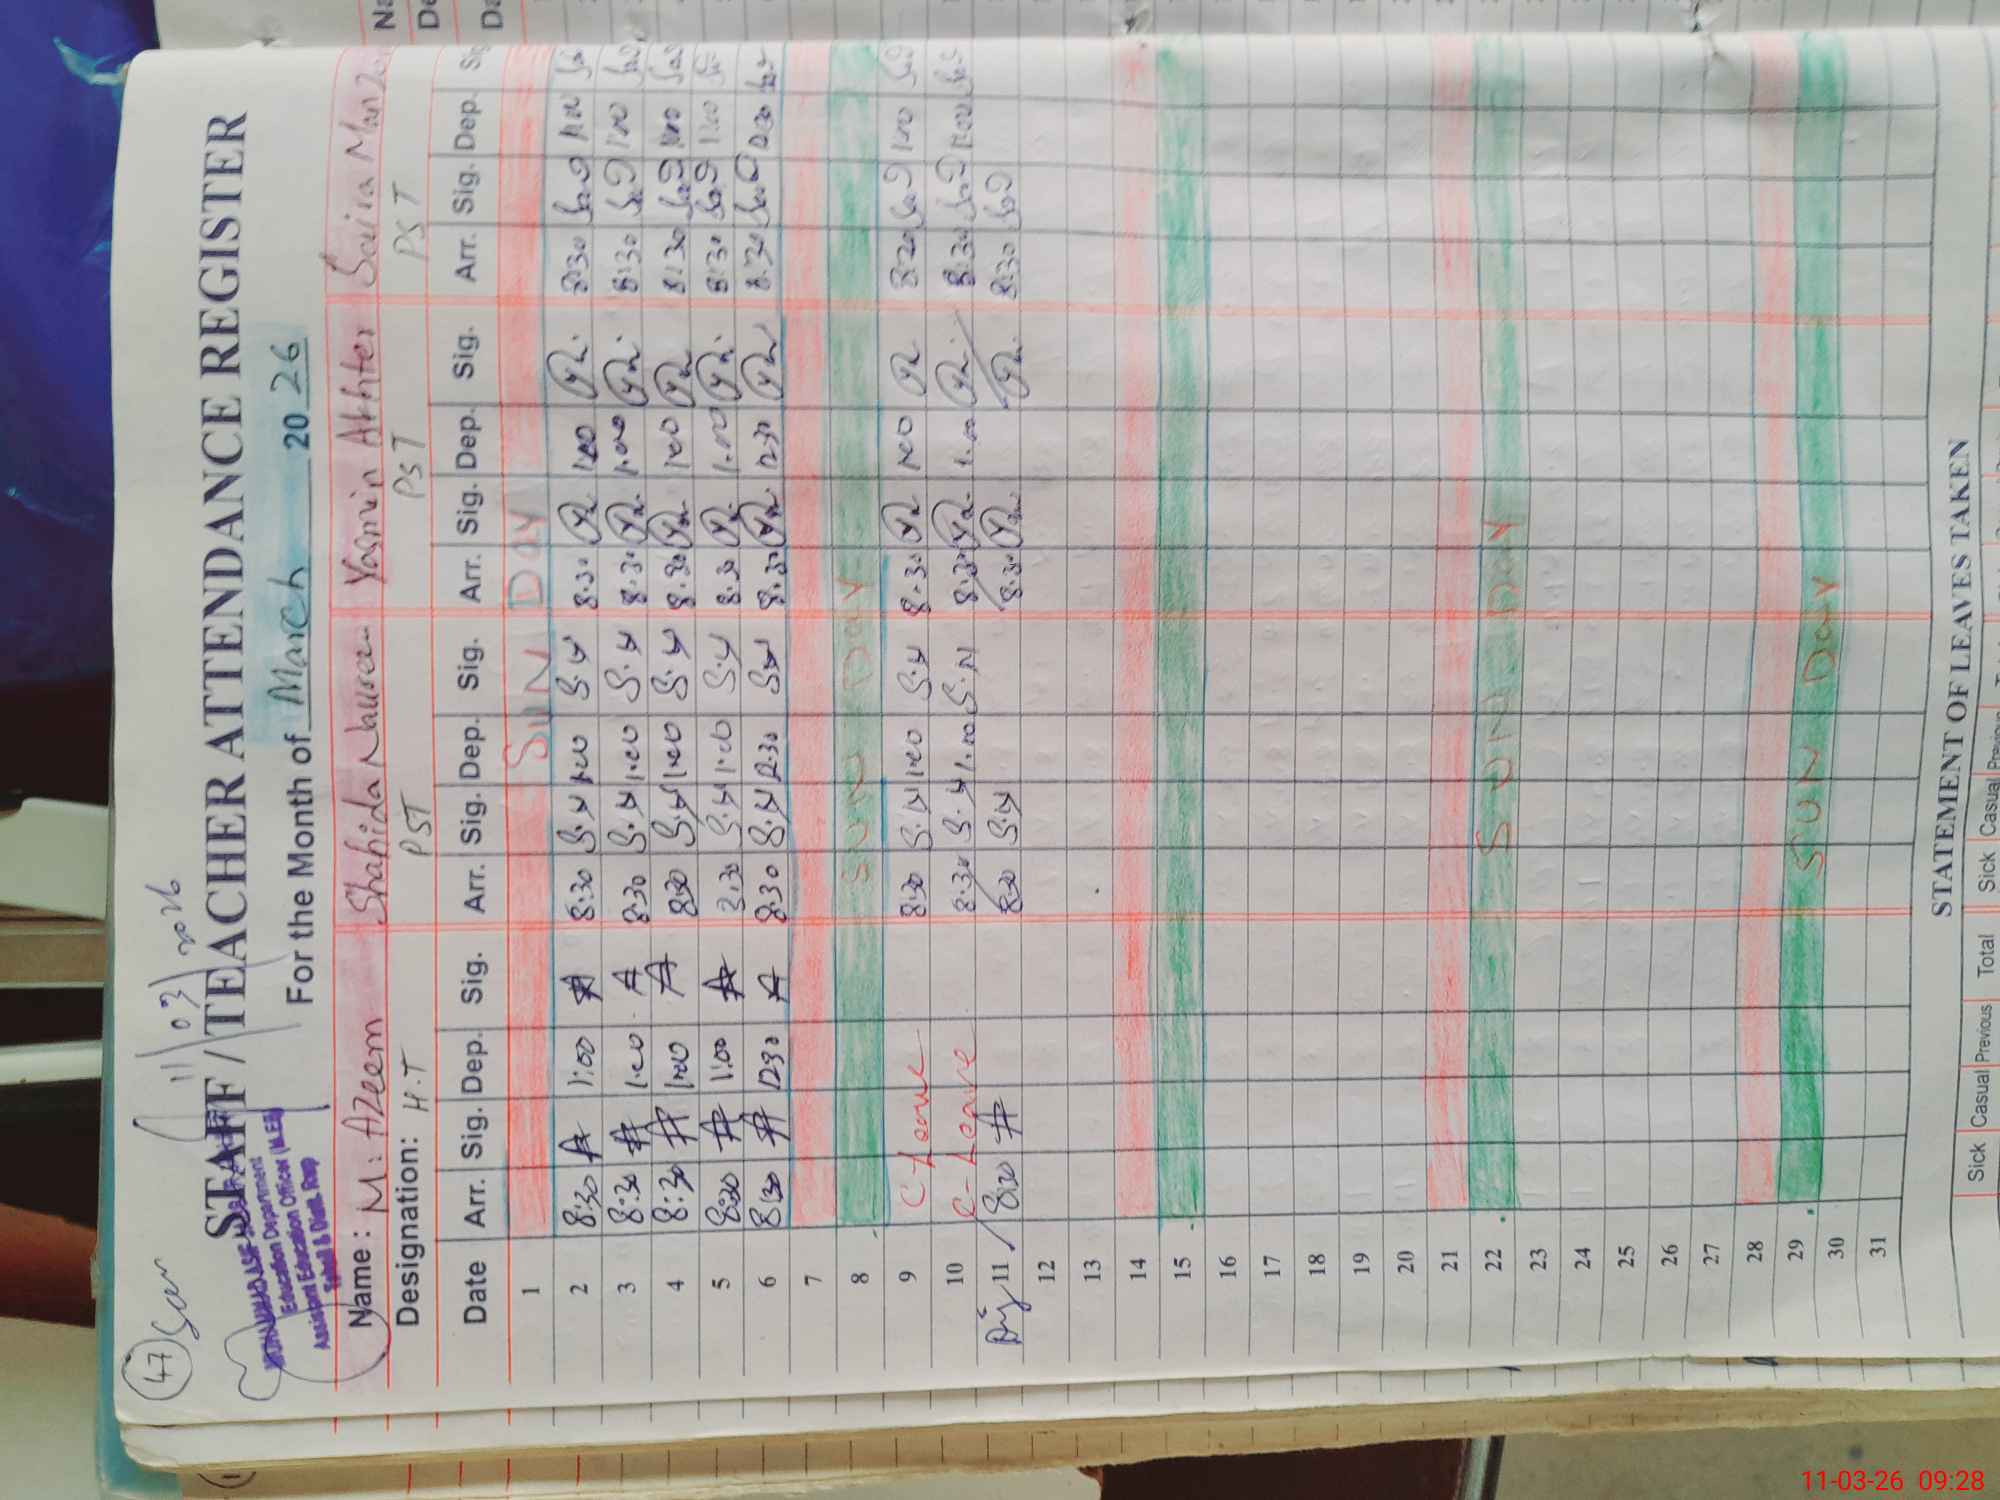 47 Seen
11/03/2026
STAFF / TEACHER ATTENDANCE REGISTER
Education Department
Assistant Education Officer (M.EE)
For the Month of March 2026
Name: M: Azeem Shahida Nasreen Yasmin Akhter Saira
Designation: H.T PST PST PST
Date Arr. Sig. Dep. Sig. Arr. Sig. Dep. Sig. Arr. Sig. Dep. Sig. Arr. Sig. Dep.
1 SUN Day
2 8:30 1:00 8:30 S.N 1:00 S.N 8:30 1:00 8:30 1:00
3 8:30 1:00 8:30 S.N 1:00 S.N 8:30 1:00 8:30 1:00
4 8:30 1:00 8:30 S.N 1:00 S.N 8:30 1:00 8:30 1:00
5 8:30 1:00 8:30 S.N 1:00 S.N 8:30 1:00 8:30 1:00
6 8:30 12:30 8:30 S.N 12:30 S.N 8:30 12:30 8:30 12:30
7
8 SUN Day
9 C Leave 8:30 S.N 1:00 S.N 8:30 1:00 8:30 1:00
10 C-Leave 8:30 S.N 1:00 S.N 8:30 1:00 8:30 1:00
11 8:30 8:30 S.N 8:30 8:30
12
13
14
15
16
17
18
19
20
21
22 SUN Day
23
24
25
26
27
28
29 SUN Day
30
31
STATEMENT OF LEAVES TAKEN
Sick Casual Previous Total Sick Casual Previous
11-03-26 09:28